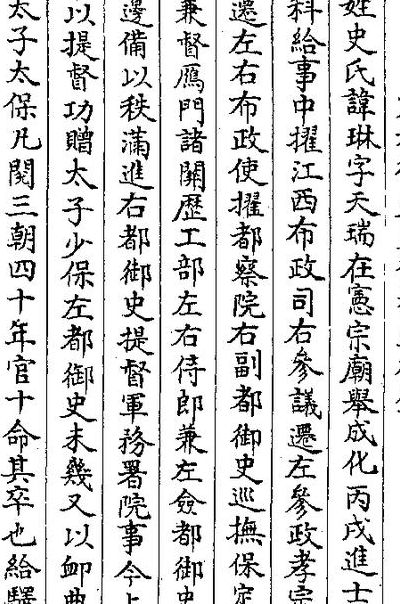 姓史氏諱琳字天瑞在憲宗廟舉成化丙戌進士
科給事中擢江西布政司右參議遷左參政孝宗
遷左右布政使擢都察院右副都御史巡撫保定
兼督鴈門諸關歷工部左右侍郎兼左僉都御史
邊備以秩滿進右都御史提督軍務署院事今上
以提督功贈太子少保左都御史未幾又以卹典
太子太保凡閱三朝四十年官十命其卒也給驛